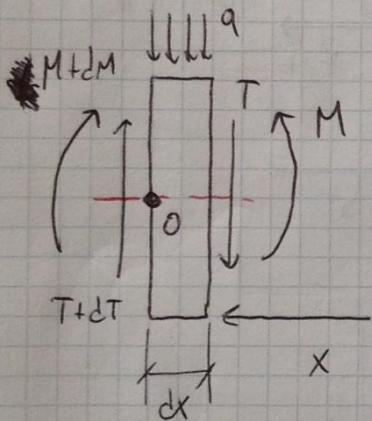 q
M+dM
T
M
O
T+dT
x
dx